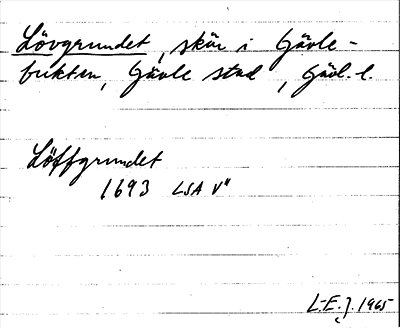 Lövgrundet, skär i Gävle-
bukten, Gävle stad, Gävl. l.
Löffgrundet
1693 LSA V"
L-E. J. 1965